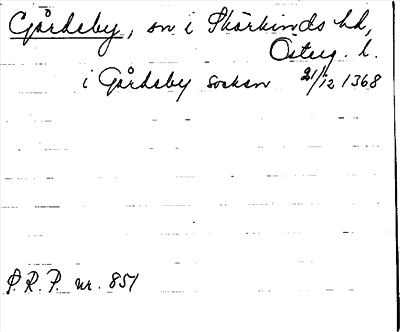 Gårdeby, sn i Skärkinds hd,
Österg. l.
i Gårdeby socken 21/12 1368
S.R.P. nr. 851